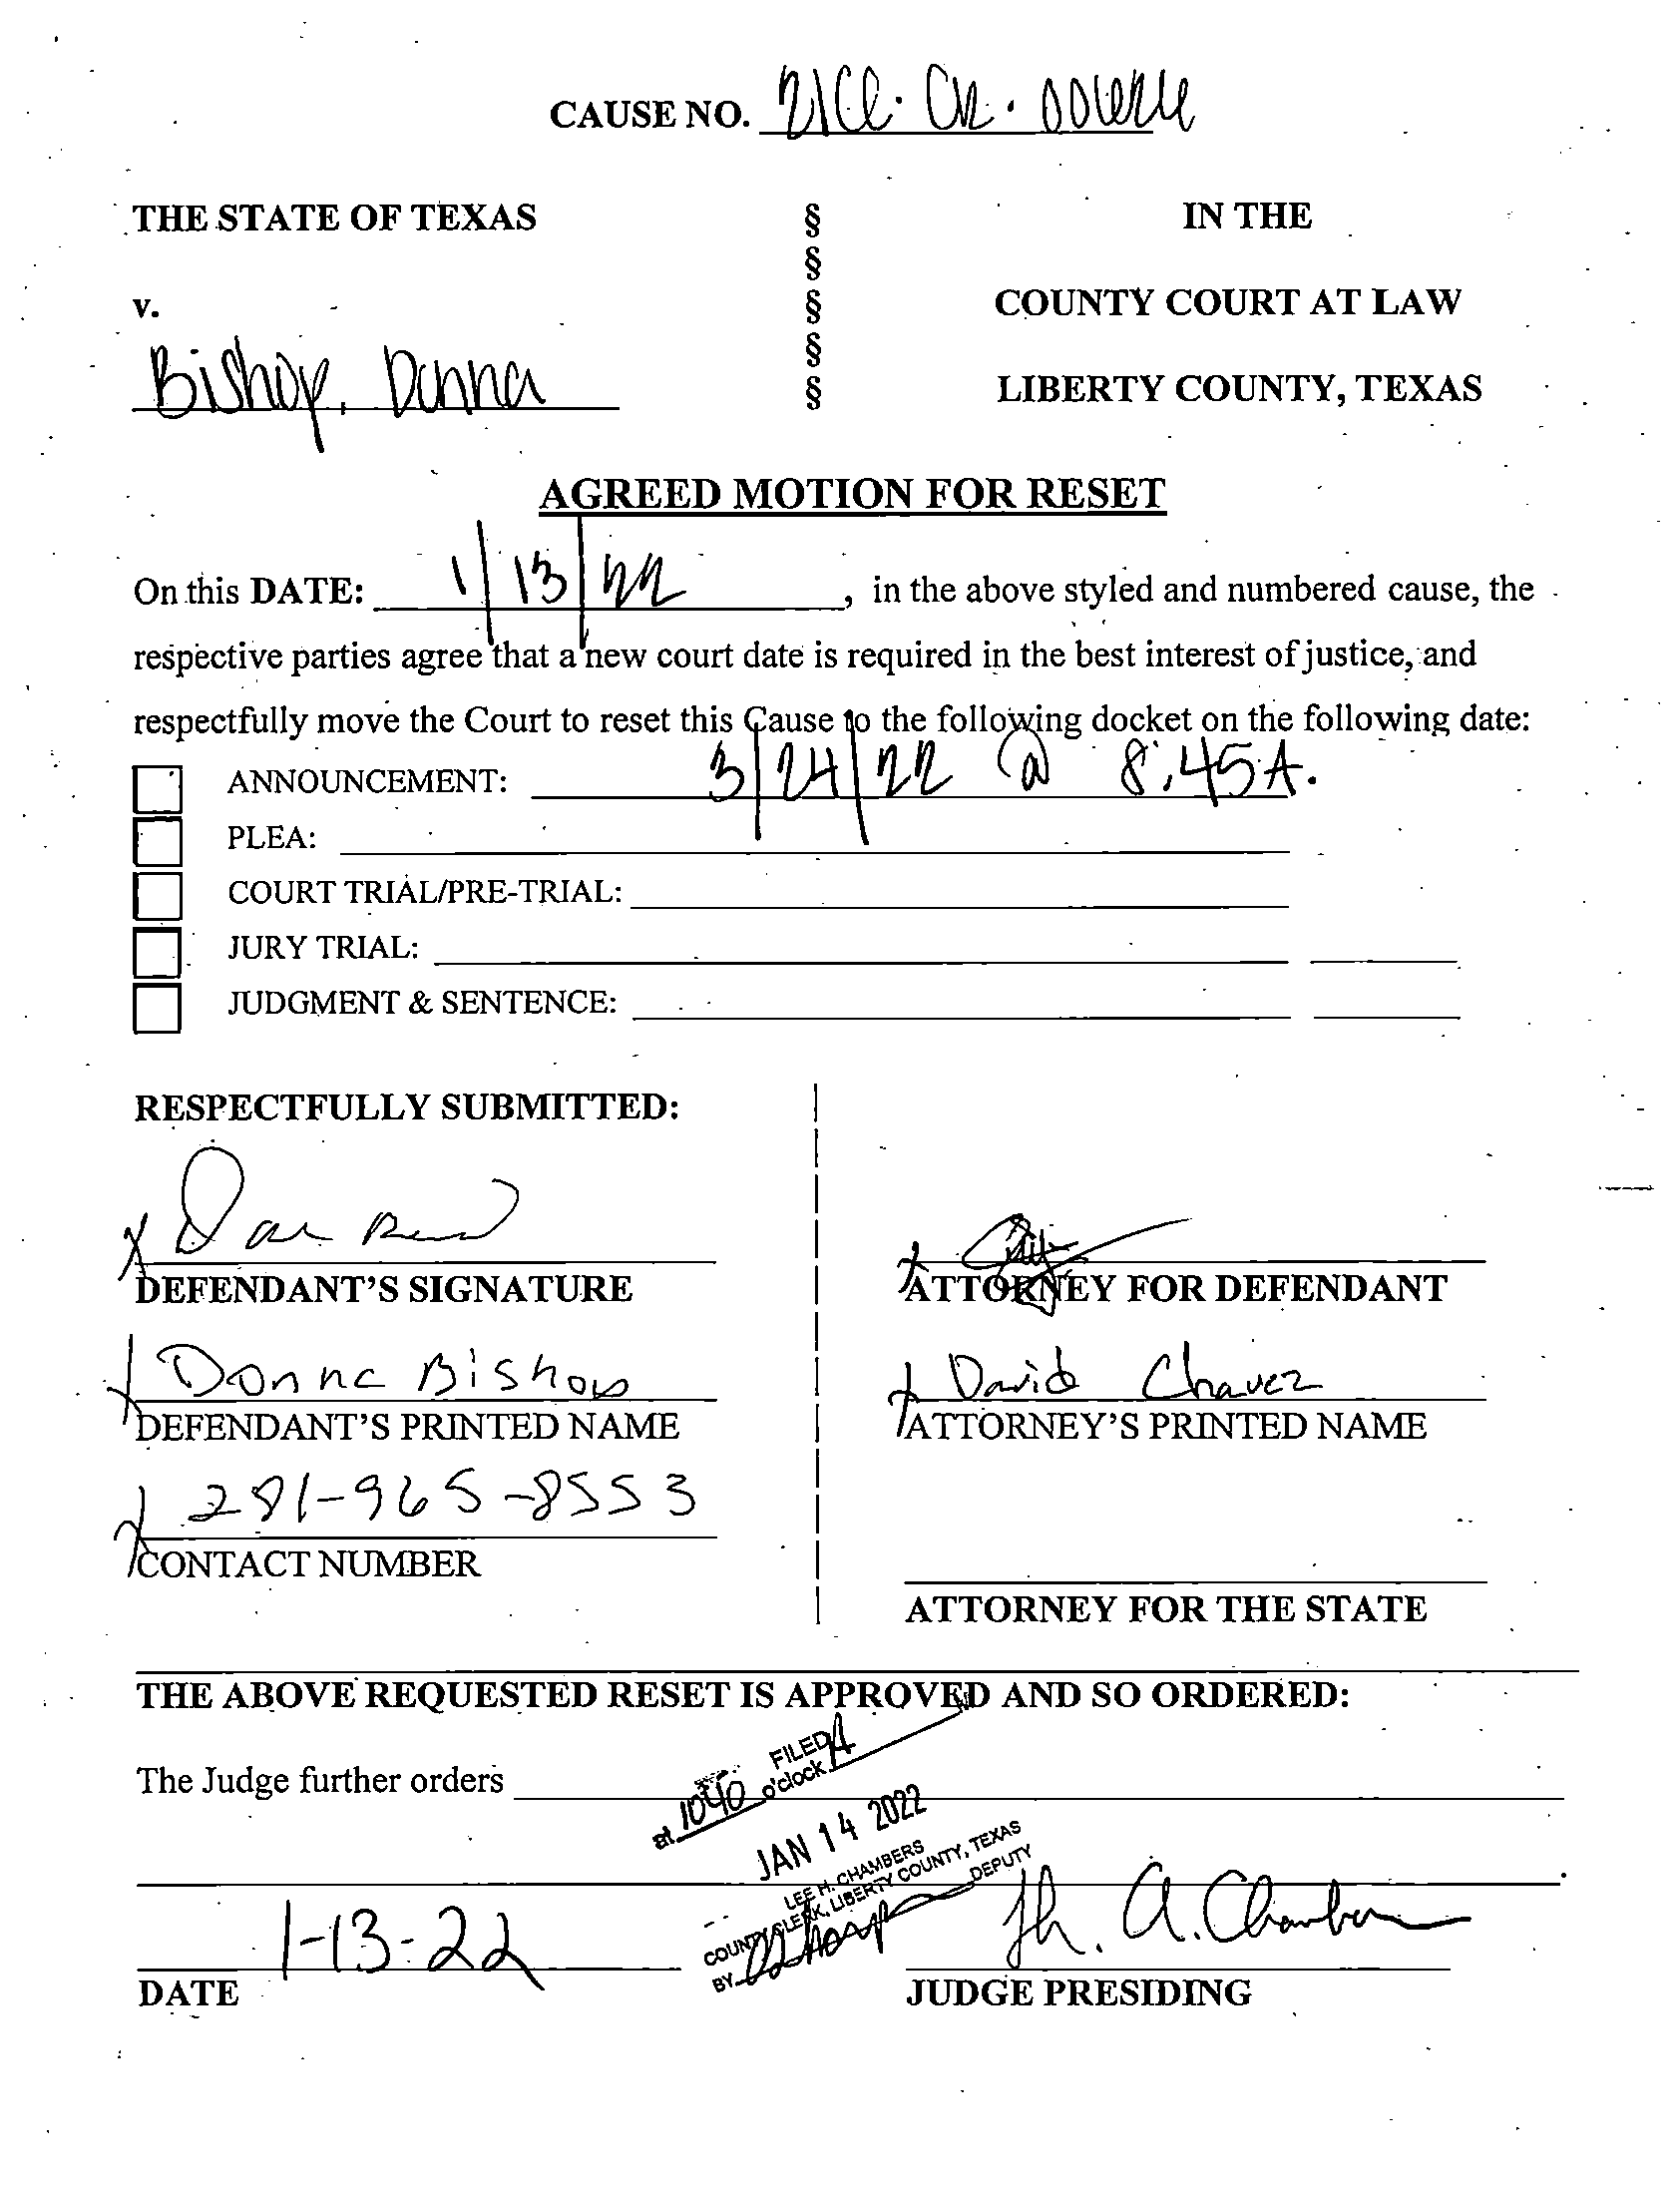 CAUSE NO. 21CCL·CR·
THE STATE OF TEXAS § IN THE
§
v. § COUNTY COURT AT LAW
§
Bishop, Donna § LIBERTY COUNTY, TEXAS
AGREED MOTION FOR RESET
On this DATE: 1/13/22, in the above styled and numbered cause, the
respective parties agree that a new court date is required in the best interest of justice, and
respectfully move the Court to reset this Cause to the following docket on the following date:
ANNOUNCEMENT: 3/24/22 @ 8:45A.
PLEA:
COURT TRIAL/PRE-TRIAL:
JURY TRIAL:
JUDGMENT & SENTENCE:
RESPECTFULLY SUBMITTED:
X
DEFENDANT'S SIGNATURE
X ATTORNEY FOR DEFENDANT
X Donna Bishop
DEFENDANT'S PRINTED NAME
X David Chavez
ATTORNEY'S PRINTED NAME
X 281-965-8553
CONTACT NUMBER
ATTORNEY FOR THE STATE
THE ABOVE REQUESTED RESET IS APPROVED AND SO ORDERED:
The Judge further orders
FILED
at 1040 o'clock A M
JAN 14 2022
LEE H. CHAMBERS
COUNTY CLERK, LIBERTY COUNTY, TEXAS
BY DEPUTY
1-13-22 Th. A. Chambers
DATE JUDGE PRESIDING